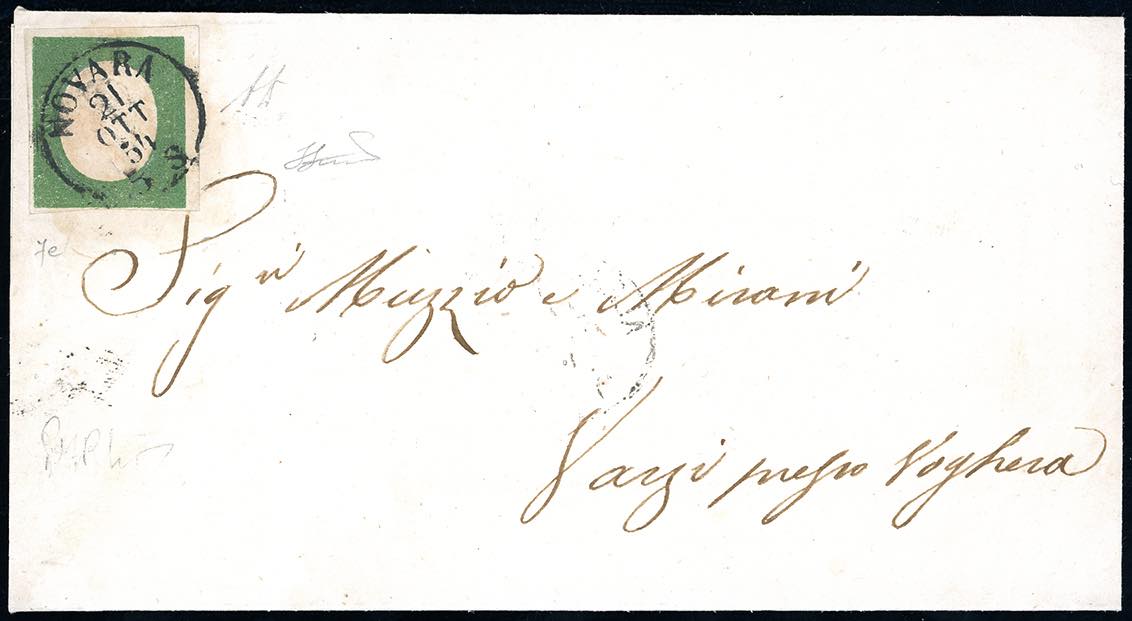 NOVARA
21
OTT
54
5 S
7e
Sig.ri Muzzio e Mirani
Varzi presso Voghera